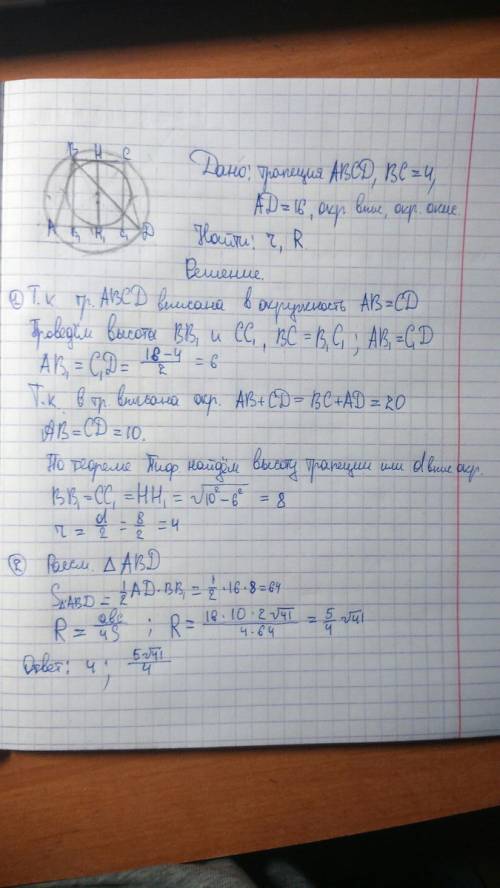 B H C
A B₁ H₁ C₁ D
Дано: трапеция ABCD, BC = 4,
AD = 16, окр. впис., окр. опис.
Найти: r, R
Решение.
① Т.к. тр. ABCD вписана в окружность AB = CD
Проведём высоты BB₁ и CC₁, BC = B₁C₁; AB₁ = C₁D
AB₁ = C₁D = (16 - 4)/2 = 6
Т.к. в тр. вписана окр. AB + CD = BC + AD = 20
AB = CD = 10.
По теореме Пиф найдём высоту трапеции или d впис окр.
BB₁ = CC₁ = HH₁ = √(10² - 6²) = 8
r = d/2 = 8/2 = 4
② Рассм. △ABD
S△ABD = 1/2 AD · BB₁ = 1/2 · 16 · 8 = 64
R = abc/4S ; R = (16 · 10 · 2√41)/(4 · 64) = 5/4 √41
Ответ: 4 ; 5√41/4